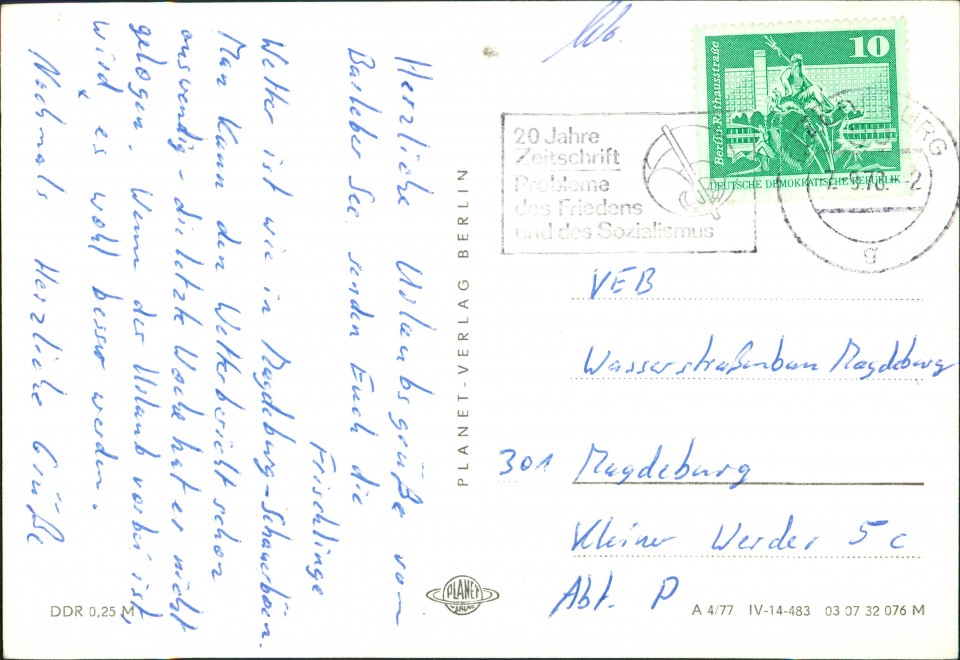 Herzliche Urlaubsgrüße vom
Barleber See, senden Euch die
Frischlinge
Wetter ist wie in Magdeburg-Schauerböen.
Man kann den Wetterbericht schon
auswendig - die letzte Woche hat er nicht
gelogen. Wenn der Urlaub vorbei ist,
wird es wohl besser werden.
Nochmals Herzliche Grüße
PLANET-VERLAG BERLIN
DDR 0,25 M
PLANET
VERLAG
10
Berlin·Rathausstraße
DEUTSCHE DEMOKRATISCHE REPUBLIK
20 Jahre
Zeitschrift
Probleme
des Friedens
und des Sozialismus
BURG
g
VEB
Wasserstraßenbau Magdeburg
301 Magdeburg
Kleiner Werder 5c
Abt. P
A 4/77 IV-14-483 03 07 32 076 M